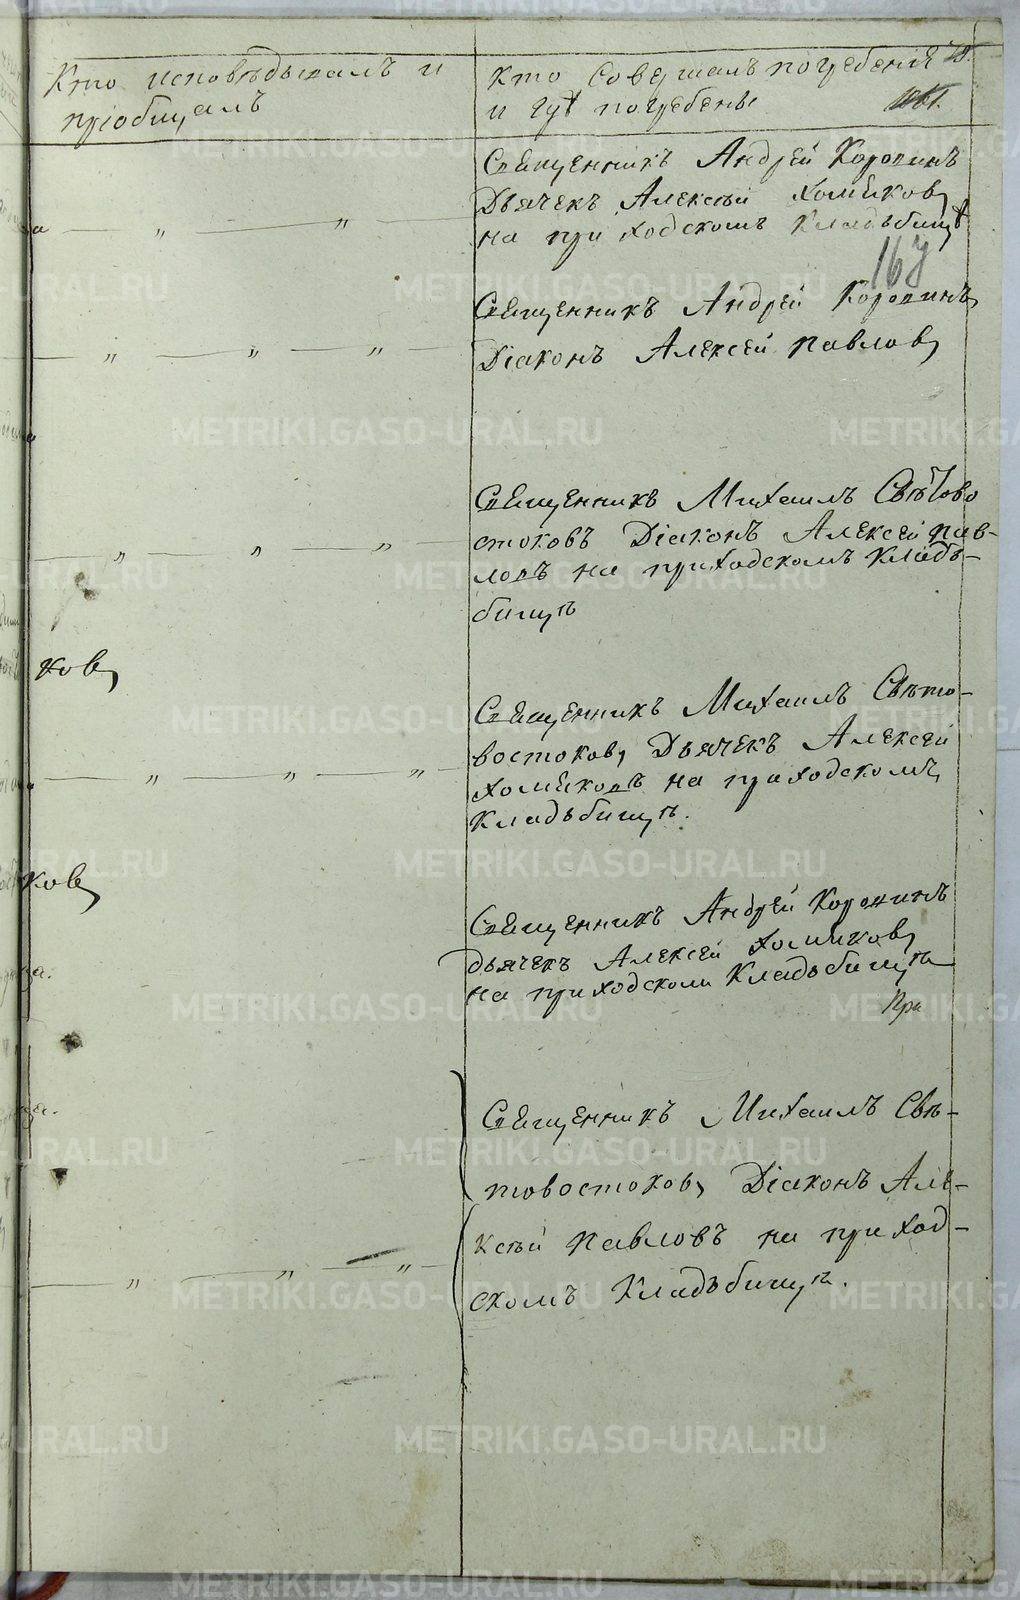 Кто исповѣдывалъ и
пріобщалъ
Кто совершалъ погребеніе
и гдѣ погребены
Священникъ Андрей Коровинъ
Дьячекъ Алексѣй Хомяковъ
на приходскомъ кладьбищѣ
167
Священникъ Андрей Коровинъ
Діаконъ Алексей Павловъ
Священникъ Михаилъ Свѣтово
стоковъ Діаконъ Алексей Пав-
ловъ на приходскомъ кладь-
бищѣ
ковъ
Священникъ Михаилъ Свѣто-
востоковъ, Дьячекъ Алексей
Хомяковъ на приходскомъ
кладьбищѣ.
ковъ
Священникъ Андрей Коровинъ
дьячекъ Алексей Хомяковъ
на приходскомъ кладьбищѣ
При
Священникъ Михаилъ Свѣ-
товостоковъ, Діаконъ Але-
ксѣй Павловъ на приход-
скомъ кладьбищѣ.
METRIKI.GASO-URAL.RU